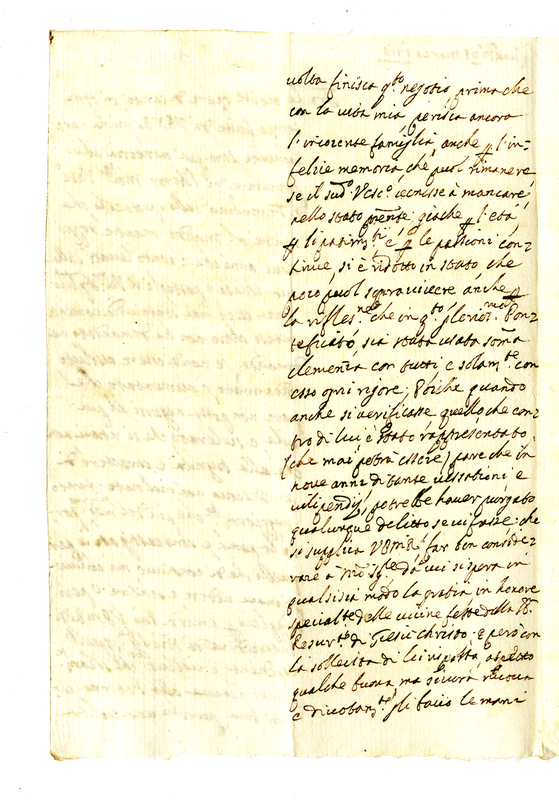 volta finisca q.to negotio prima che
con la vita mia perisca ancora
l'innocente famiglia, anche p l'in-
felice memoria, che puol rimanere
se il sud.o Vesc.o venisse à mancare
nello stato p̄nte, giache p l'età,
p li patim.ti, e p le passioni con-
tinue, si è ridotto in stato, che
poco puol sopravivere anche p
la rifles.ne che in q.to glorios.mo Pon-
teficato, sia stata usata som̄a
clemenza con tutti e solam.te con
esso ogni rigore; Poiche quando
anche si verificasse quello che con-
tro di lui è stato rappresentato
(che mai potrà essere) pare che in
nove anni di tante vessationi e
vilipendij, potrebbe haver purgato
qualunque delitto se vi fusse: che
si supplica far ben conside-
rare à da cui si spera in
qualsisia modo la gratia in honore
specialte delle vicine feste della
Resur.ne di Giesù Christo. e però con
la sollecita di lei risposta, aspetto
qualche buona, ma sicura nuova
e divotam.te gli bacio le mani